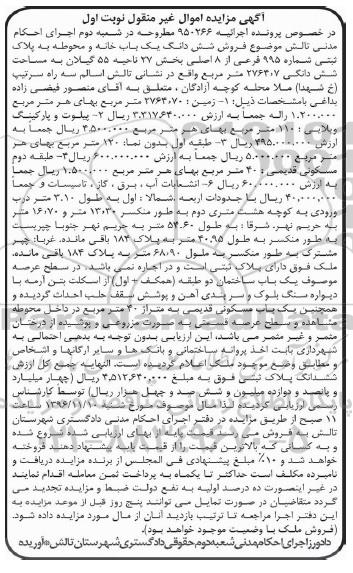 آگهی مزایده اموال غیر منقول نوبت اول
در خصوص پرونده اجرائیه ۹۵۰۲۶۶ مطروحه در شعبه دوم اجرای احکام
مدنی تالش موضوع فروش شش دانگ یک باب خانه و محوطه به پلاک
ثبتی شماره ۹۹۵ فرعی از ۸ اصلی بخش ۲۷ ناحیه ۵۵ گیلان به مساحت
شش دانگی ۲۷۶۴۰۷ متر مربع واقع در نشانی تالش اسالم سه راه سرتیپ
(خ شهدا) ملا محله کوچه آزادگان ، متعلق به آقای منصور فیضی زاده
بداغی بامشخصات ذیل: ۱- زمین : ۲۷۶۴۰۷۰ متر مربع بهای هر متر مربع
۱.۲۰۰.۰۰۰ ریال جمعا به ارزش ۳.۳۱۷.۶۴۰.۰۰۰ ریال ۲- پیلوت و پارکینگ
ویلایی : ۱۱۰ متر مربع بهای هر متر مربع ۴.۵۰۰.۰۰۰ ریال جمعا به
ارزش ۴۹۵.۰۰۰.۰۰۰ ریال ۳- طبقه اول بدون نما: ۱۲۰ متر مربع بهای هر
متر مربع ۵.۰۰۰.۰۰۰ ریال جمعا به ارزش ۶۰۰.۰۰۰.۰۰۰ ریال ۴- طبقه دوم
مسکونی قدیمی : ۴۰ متر مربع بهای هر متر مربع ۱.۵۰۰.۰۰۰ ریال جمعا
به ارزش ۶۰.۰۰۰.۰۰۰ ریال ۶- انشعابات آب ، برق ، گاز ، تاسیسات و جمعاً
۴۰.۰۰۰.۰۰۰ ریال با حدودات اربعه شمالا : اول به طول ۳.۱۰ متر درب
ورودی به کوچه هشت متری دوم به طور منکسر ۱۳.۳۰ متر و ۱۶.۷۰ متر
به حریم نهر. شرقا : به طول ۵۴.۶۰ متر به حریم نهر جنوبا چپریست
به طور منکسر به طول ۴۰.۹۵ متر به پلاک ۱۸۴ باقی مانده. غربا: چپر
مشترک به طور منکسر به طول ۶۸.۰۹۰ متر به پلاک ۱۸۴ باقی مانده.
ملک فوق دارای پلاک ثبتی است و در اجاره نمی باشد. در سطح عرصه
موصوف یک باب ساختمان دو طبقه (همکف + اول) از اسکلت بتن آرمه با
دیواره سنگ بلوک و سربندی آهن و پوشش سقف حلب احداث گردیده و
همچنین یک باب مسکونی قدیمی به متراژ ۴۰ متر مربع در داخل محوطه
مشاهده و سطح عرصه مبنی به صورت مزروعی و پوشیده از درختان
مثمر و غیر مثمر می باشد. این ارزیابی بدون توجه به بدهی احتمالی به
شهرداری بابت اخذ پروانه ساختمانی و بانک ها و سایر ارگانها و اشخاص
و مطابق وضع موجود ملک اعلام گردیده است. النهایه جمع کل ارزش
ششدانگ پلاک ثبتی فوق به مبلغ ۴.۵۱۲.۶۴۰.۰۰۰ ریال (چهار میلیارد
و پانصد و دوازده میلیون و شش صد و چهل هزار ریال) توسط کارشناس
رسمی ارزیابی گردیده لذا مال موصوف مورخ شنبه ۱۳۹۶/۱۱/۱۰ ساعت
۱۱ صبح از طریق مزایده در دفتر اجرای احکام مدنی دادگستری شهرستان
تالش به فروش می رسد. قیمت پایه از بهای ارزیابی شده شروع شده
و به کسانی که بالاترین قیمت را از قیمت پایه پیشنهاد دهند فروخته
خواهد شد و ۱۰٪ مبلغ پیشنهادی فی المجلس از برنده مزایده دریافت و
نامبرده مکلف است حداکثر تا یکماه به پرداخت ثمن معامله اقدام نماید
در غیر اینصورت ده درصد اولیه به نفع دولت ضبط و مزایده تجدید می
گردد متقاضیان در صورت تمایل می توانند پنج روز قبل از موعد مزایده به
این دفتر اجرا مراجعه تا ترتیب بازدید آنان از مال مورد مزایده داده شود.
(فروش ملک با وضعیت موجود خواهد بود).
دادورز اجرای احکام مدنی شعبه دوم حقوقی دادگستری شهرستان تالش - آوریده